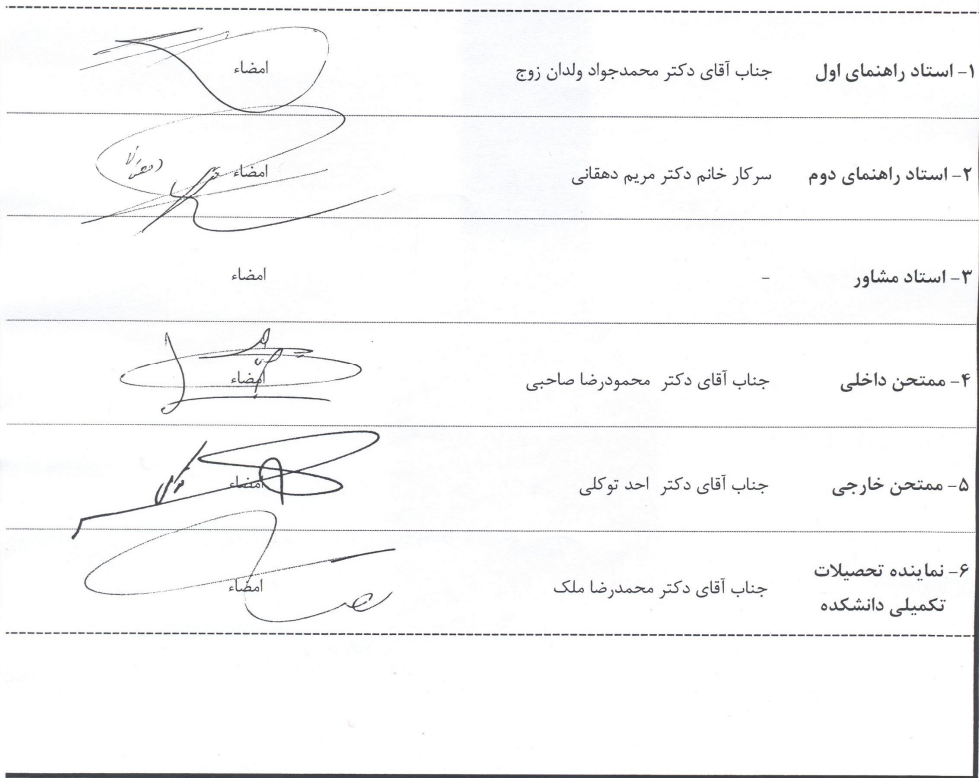 ۱- استاد راهنمای اول جناب آقای دکتر محمدجواد ولدان زوج امضاء
۲- استاد راهنمای دوم سرکار خانم دکتر مریم دهقانی امضاء
۳- استاد مشاور - امضاء
۴- ممتحن داخلی جناب آقای دکتر محمودرضا صاحبی امضاء
۵- ممتحن خارجی جناب آقای دکتر احد توکلی امضاء
۶- نماینده تحصیلات
تکمیلی دانشکده جناب آقای دکتر محمدرضا ملک امضاء